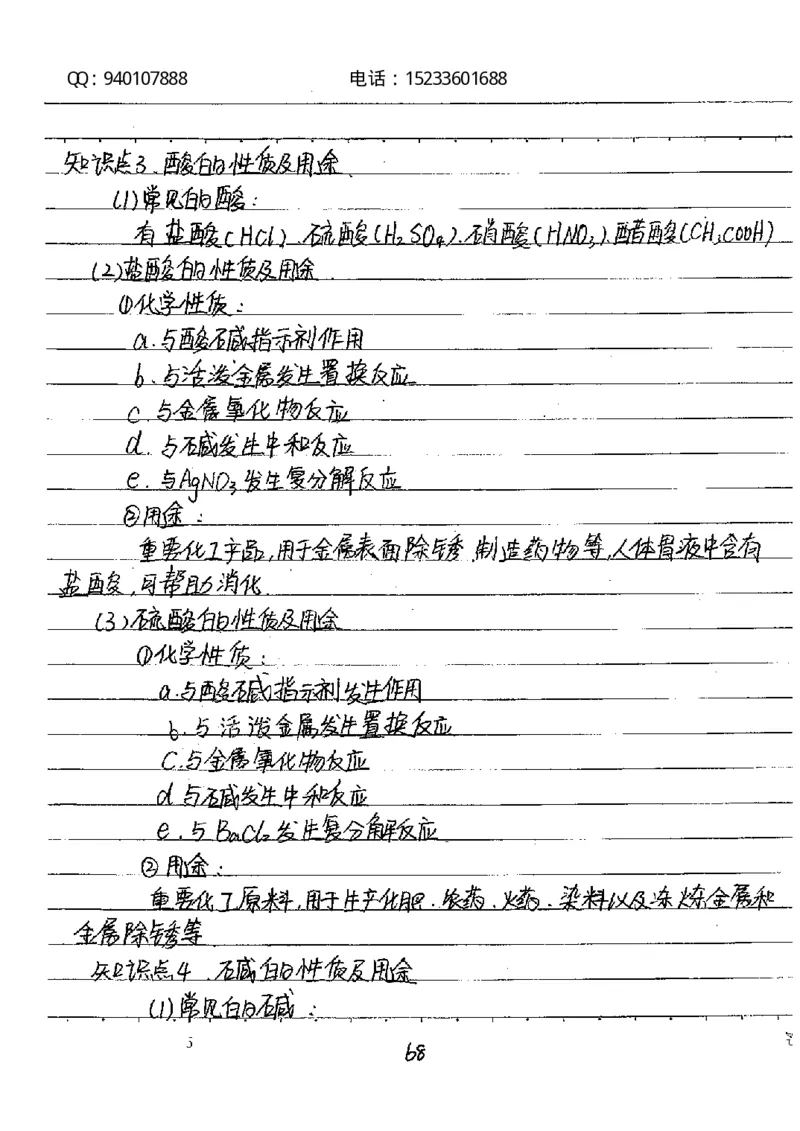 QQ：940107888 电话：15233601688
知识点3、酸的性质及用途
(1)常见的酸：
有盐酸(HCl)、硫酸(H₂SO₄)、硝酸(HNO₃)、醋酸(CH₃COOH)
(2)盐酸的性质及用途
①化学性质：
a.与酸碱指示剂作用
b.与活泼金属发生置换反应
c.与金属氧化物反应
d.与碱发生中和反应
e.与AgNO₃发生复分解反应
②用途：
重要化工产品,用于金属表面除锈、制造药物等,人体胃液中含有
盐酸,可帮助消化
(3)硫酸的性质及用途
①化学性质：
a.与酸碱指示剂发生作用
b.与活泼金属发生置换反应
c.与金属氧化物反应
d.与碱发生中和反应
e.与BaCl₂发生复分解反应
②用途：
重要化工原料,用于生产化肥、农药、火药、染料以及冻炼金属和
金属除锈等
知识点4、碱的性质及用途
(1)常见的碱：
5
68